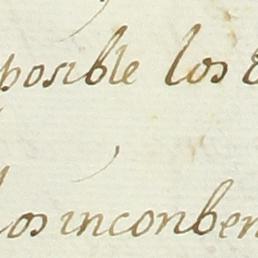 posible los
los inconben